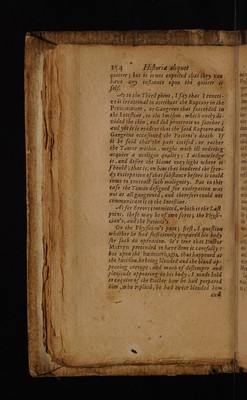 254 Historiæ aliquot
quitter; but it is not expected that they can
have any instance upon the quitter it
self.
As to the Third point, I say that I conceive
it irrational to attribute the Rupture in the
Peritonæum, or Gangrene that succeeded in
the Intestine, to the Incision, which only divided
the skin, and did penetrate no further;
and yet it is evident that the said Rupture and
Gangrene occasioned the Patient's death. If
it be said that the pus itself, or rather
the Tumor within, might with its
acquire a malign quality; I acknowledge
it, and desire the blame may light where it
should; that is, on him that hindred the free
extirpation of that substance before it could
come to contract such malignity. But in this
case the Tumor designed for extirpation was
not at all gangrened, and therefore could not
communicate it to the Intestine.
As for Errors committed, which is the Last
point, these may be of two sorts; the Physician's,
and the Patient's.
On the Physician's part; first, I question
whether he had sufficiently prepared his body
for such an operation. It's true that Doctor
Mertyn pretended to have done it carefully:
but upon the hæmorrhagy, that happened at
the Incision, he being blouded and the bloud appearing
corrupt, and much of distemper and
plenitude appearing in his body, I made bold
to enquire of the Doctor how he had prepared
him, who replied, he had twice blouded him
and